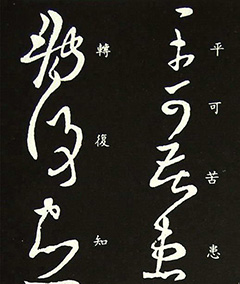 平可苦患
轉復知